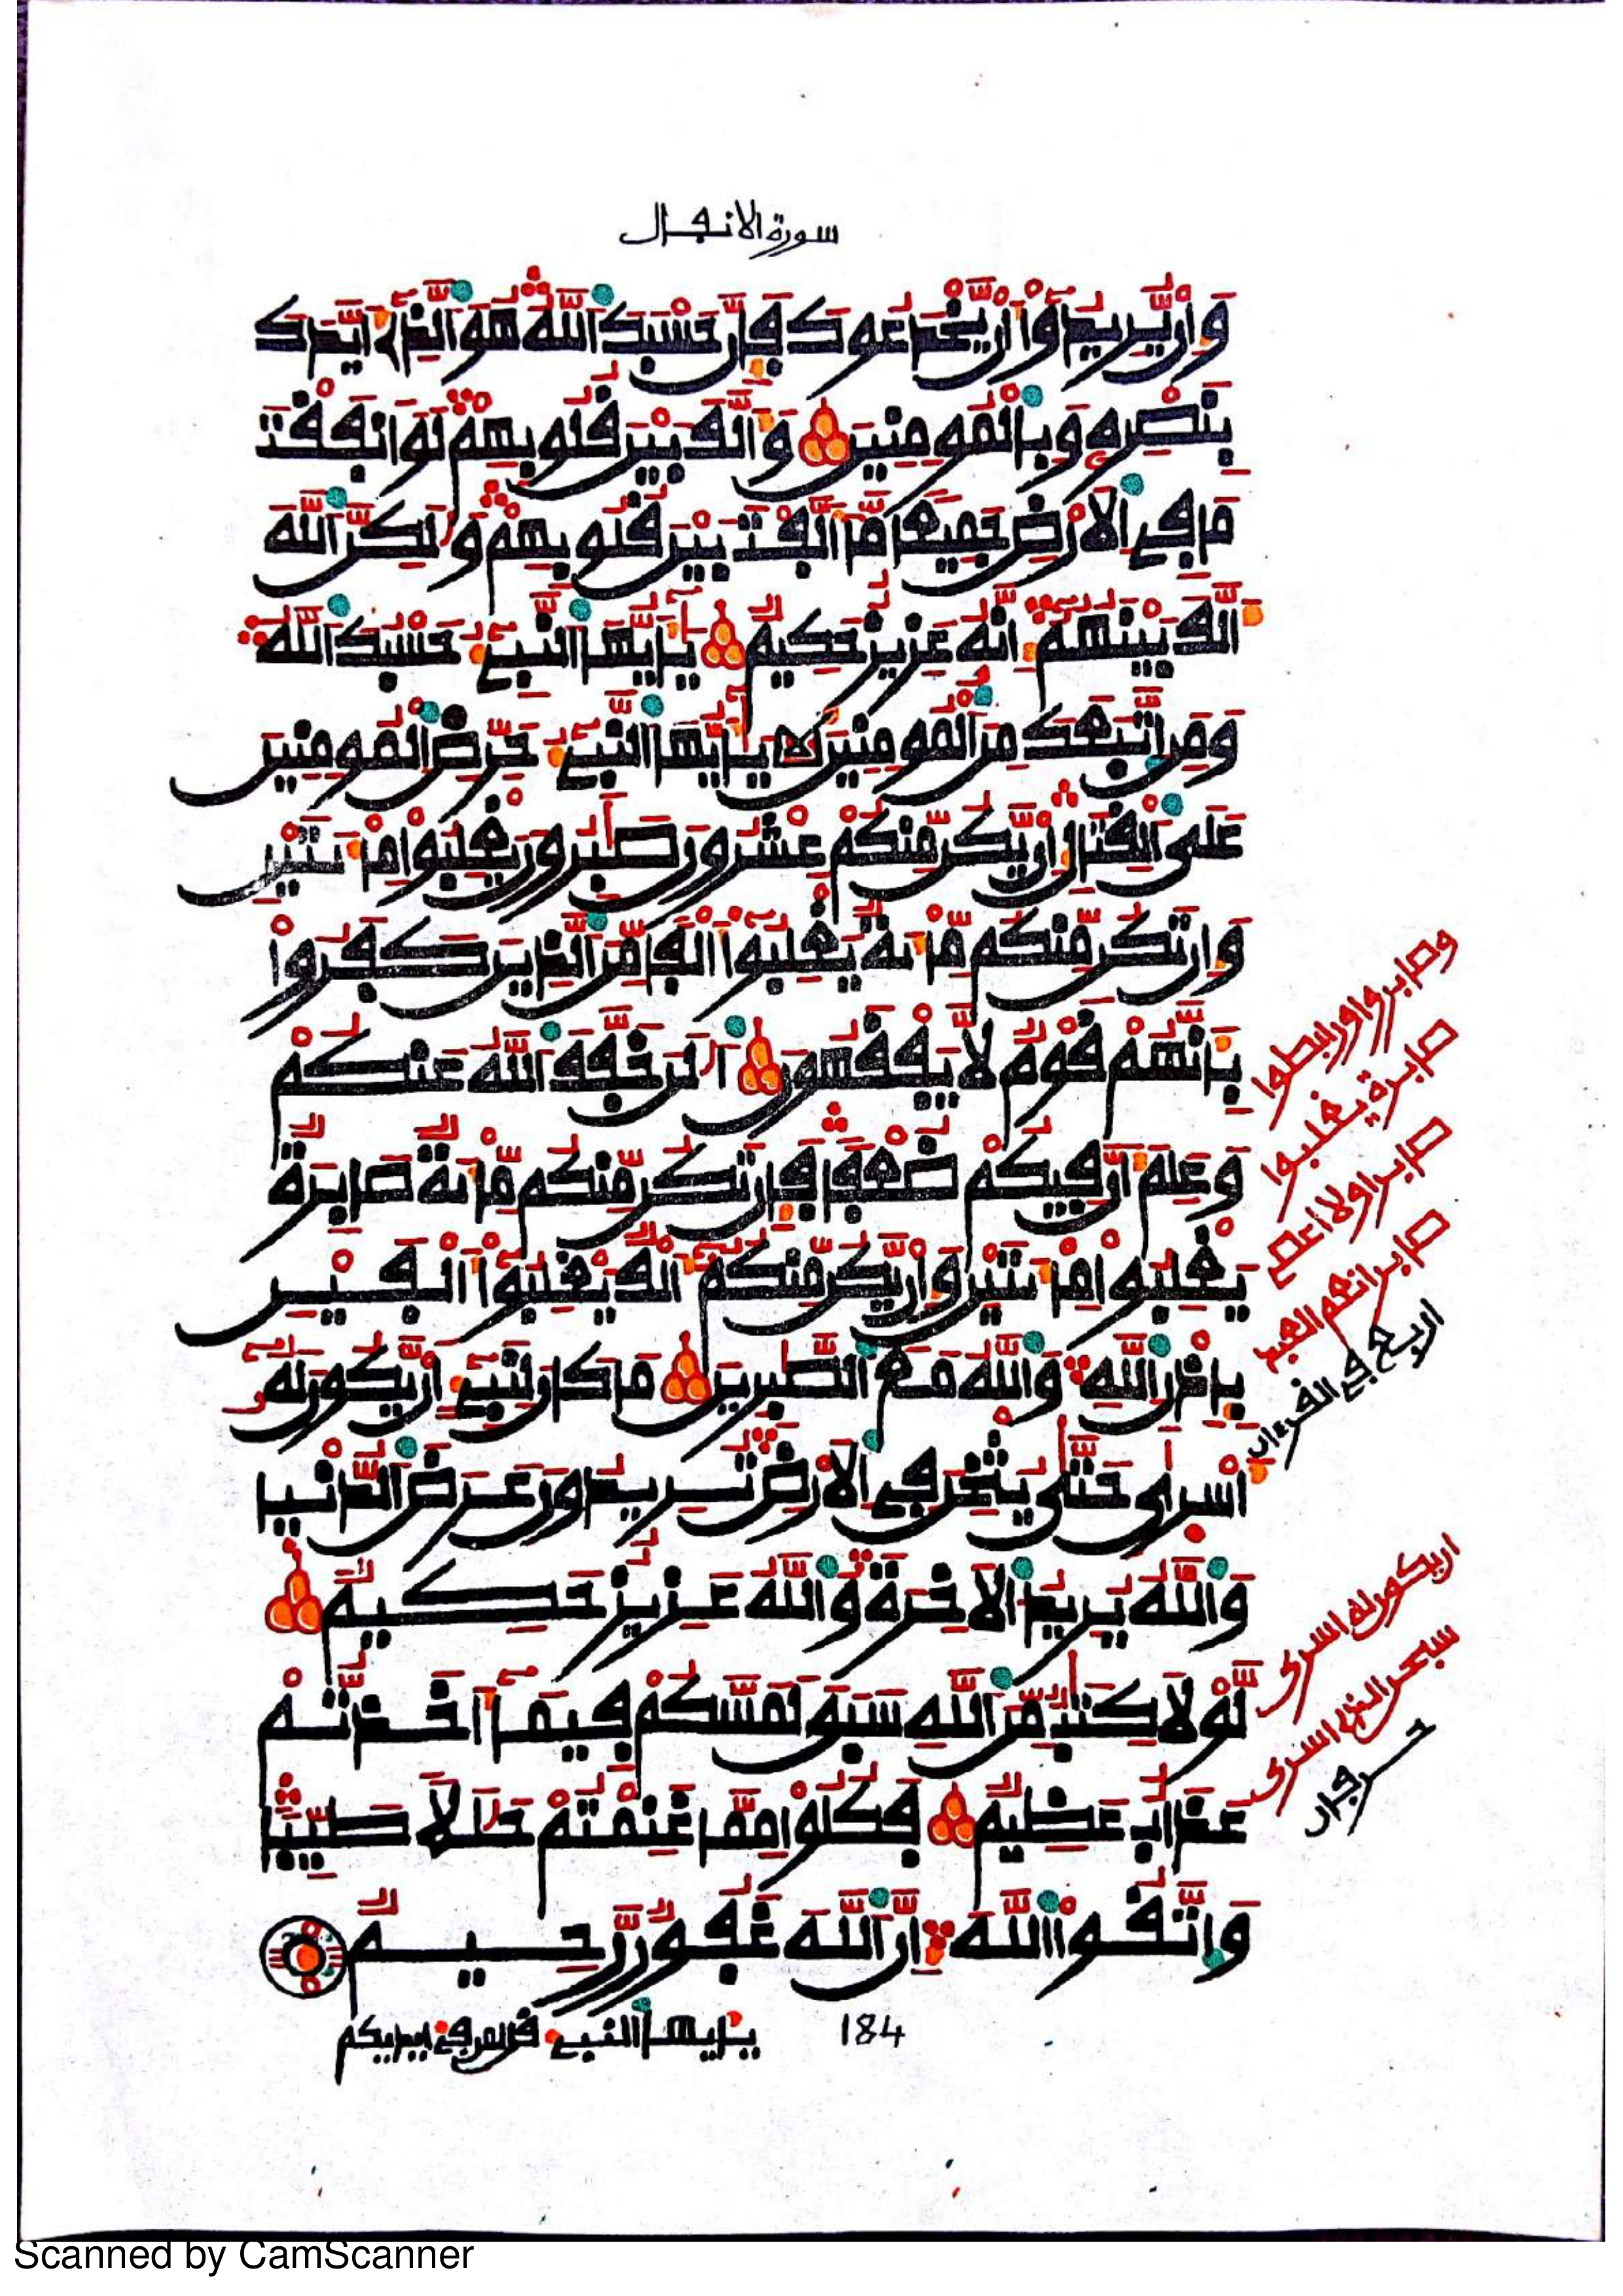 سورة الانفال
وَإِنْ يُّرِيدُوٓاْ أَنْ يَّخْدَعُوكَ فَإِنَّ حَسْبَكَ اَللَّهُ هُوَ اَلذِےٓ أَيَّدَكَ
بِنَصْرِهِۦ وَبِالْمُومِنِينَ وَأَلَّفَ بَيْنَ قُلُوبِهِمْ لَوَ اَنفَقْتَ
مَا فِے اِلَارْضِ جَمِيعاً مَّآ أَلَّفْتَ بَيْنَ قُلُوبِهِمْ وَلَٰكِنَّ اَللَّهَ
أَلَّفَ بَيْنَهُمُۥٓ إِنَّهُۥ عَزِيزٌ حَكِيمٌ يَٰٓأَيُّهَا اَلنَّبِےٓءُ حَسْبُكَ اَللَّهُ
وَمَنِ اِتَّبَعَكَ مِنَ اَلْمُومِنِينَ يَٰٓأَيُّهَا اَلنَّبِےٓءُ حَرِّضِ اِلْمُومِنِينَ
عَلَى اَلْقِتَالِ إِنْ يَّكُن مِّنكُمْ عِشْرُونَ صَٰبِرُونَ يَغْلِبُواْ مِاْئَتَيْنِ
وَإِن تَكُن مِّنكُم مِّاْئَةٌ يَغْلِبُوٓاْ أَلْفاً مِّنَ اَلذِينَ كَفَرُواْ
بِأَنَّهُمْ قَوْمٌ لَّا يَفْقَهُونَ اَلَٰنَ خَفَّفَ اَللَّهُ عَنكُمْ
وَعَلِمَ أَنَّ فِيكُمْ ضُعْفاً فَإِن تَكُن مِّنكُم مِّاْئَةٌ صَابِرَةٌ
يَغْلِبُواْ مِاْئَتَيْنِ وَإِنْ يَّكُن مِّنكُمُۥٓ أَلْفٌ يَغْلِبُوٓاْ أَلْفَيْنِ
بِإِذْنِ اِللَّهِ وَاللَّهُ مَعَ اَلصَّٰبِرِينَ مَا كَانَ لِنَبِےٓءٍ أَنْ يَّكُونَ لَهُۥٓ
أَسْرَىٰ حَتَّىٰ يُثْخِنَ فِے اِلَارْضِ تُرِيدُونَ عَرَضَ اَلدُّنْيَا
وَاللَّهُ يُرِيدُ اُلَاخِرَةَ وَاللَّهُ عَزِيزٌ حَكِيمٌ
لَّوْلَا كِتَٰبٌ مِّنَ اَللَّهِ سَبَقَ لَمَسَّكُمْ فِيمَآ أَخَذتُّمْ
عَذَابٌ عَظِيمٌ فَكُلُواْ مِمَّا غَنِمْتُمْ حَلَٰلاً طَيِّباً
وَاتَّقُواْ اُللَّهَ إِنَّ اَللَّهَ غَفُورٌ رَّحِيمٌ
184
يأيها النبےء قل لمن فے أيديكم
وصابروا ورابطوا
صابرة يغلبوا
صابرا ولا أعص
صابرا نعم العبد
اربع في القرءان
ان يكون له اسرى
سبحن الذي اسرى
حرفان